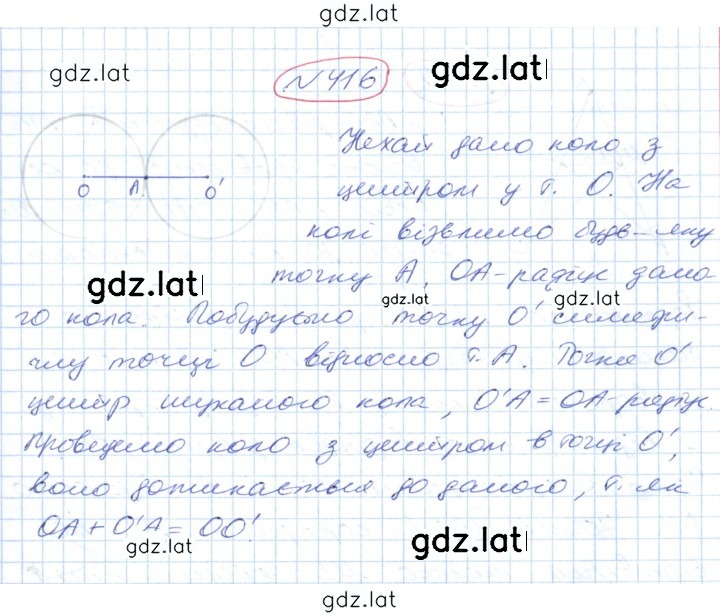 gdz.lat
gdz.lat
№ 416
gdz.lat
Нехай дано коло з
центром у т. О. На
O A. O'
колі візьлимо будь-яку
gdz.lat
точку А. ОА-радіус дано-
gdz.lat
gdz.lat
го кола. Побудуємо точку О' симетри-
чну точці О відносно т. А. Точка О'
центр шуканого кола, О'А = ОА-радіус.
Проведемо коло з центром в точці О',
воно дотикається до даного, т. як
ОА + О'А = ОО'.
gdz.lat
gdz.lat
gdz.lat